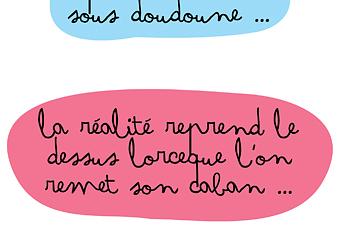 sous doudoune ...
la réalité reprend le
dessus lorceque l'on
remet son caban ...